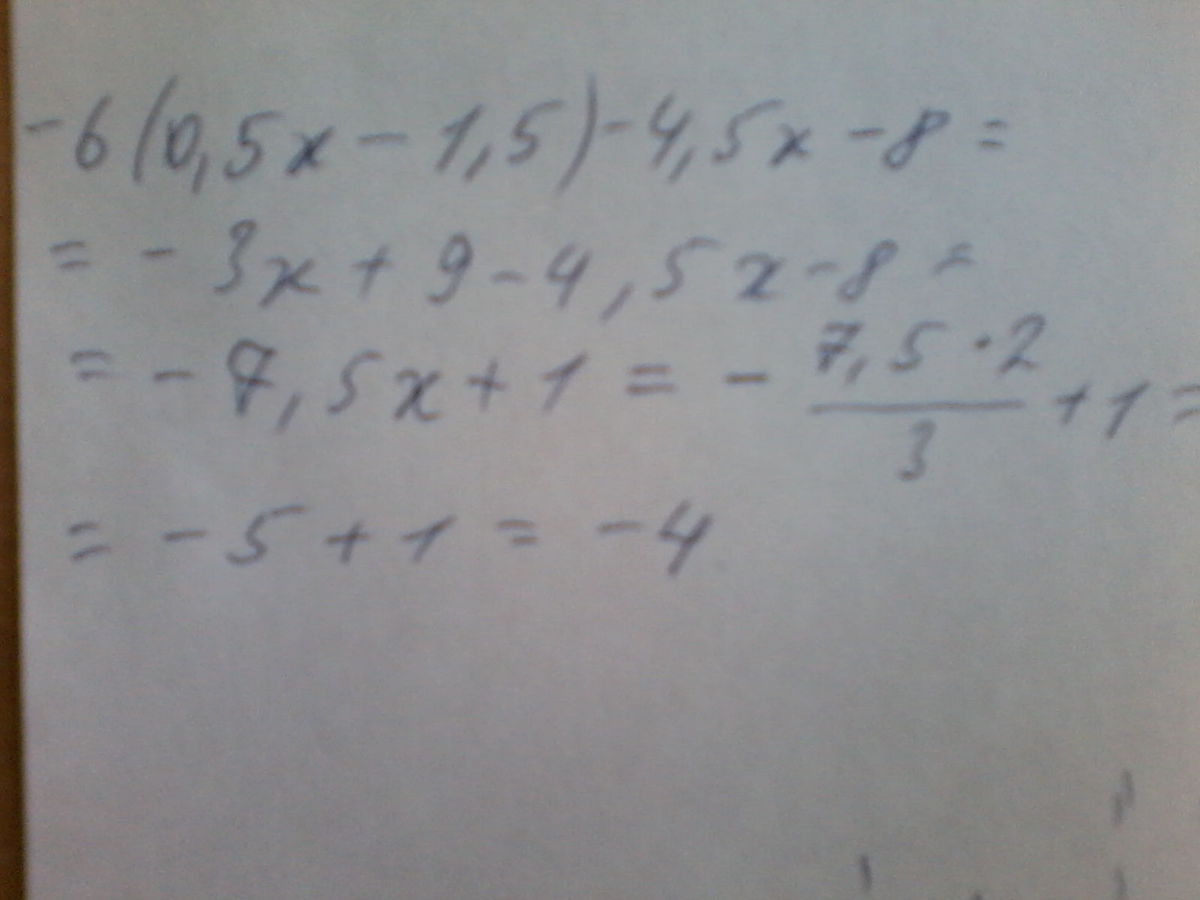 -6(0,5x-1,5)-4,5x-8=
=-3x+9-4,5x-8=
=-7,5x+1=-\frac{7,5·2}{3}+1=
=-5+1=-4